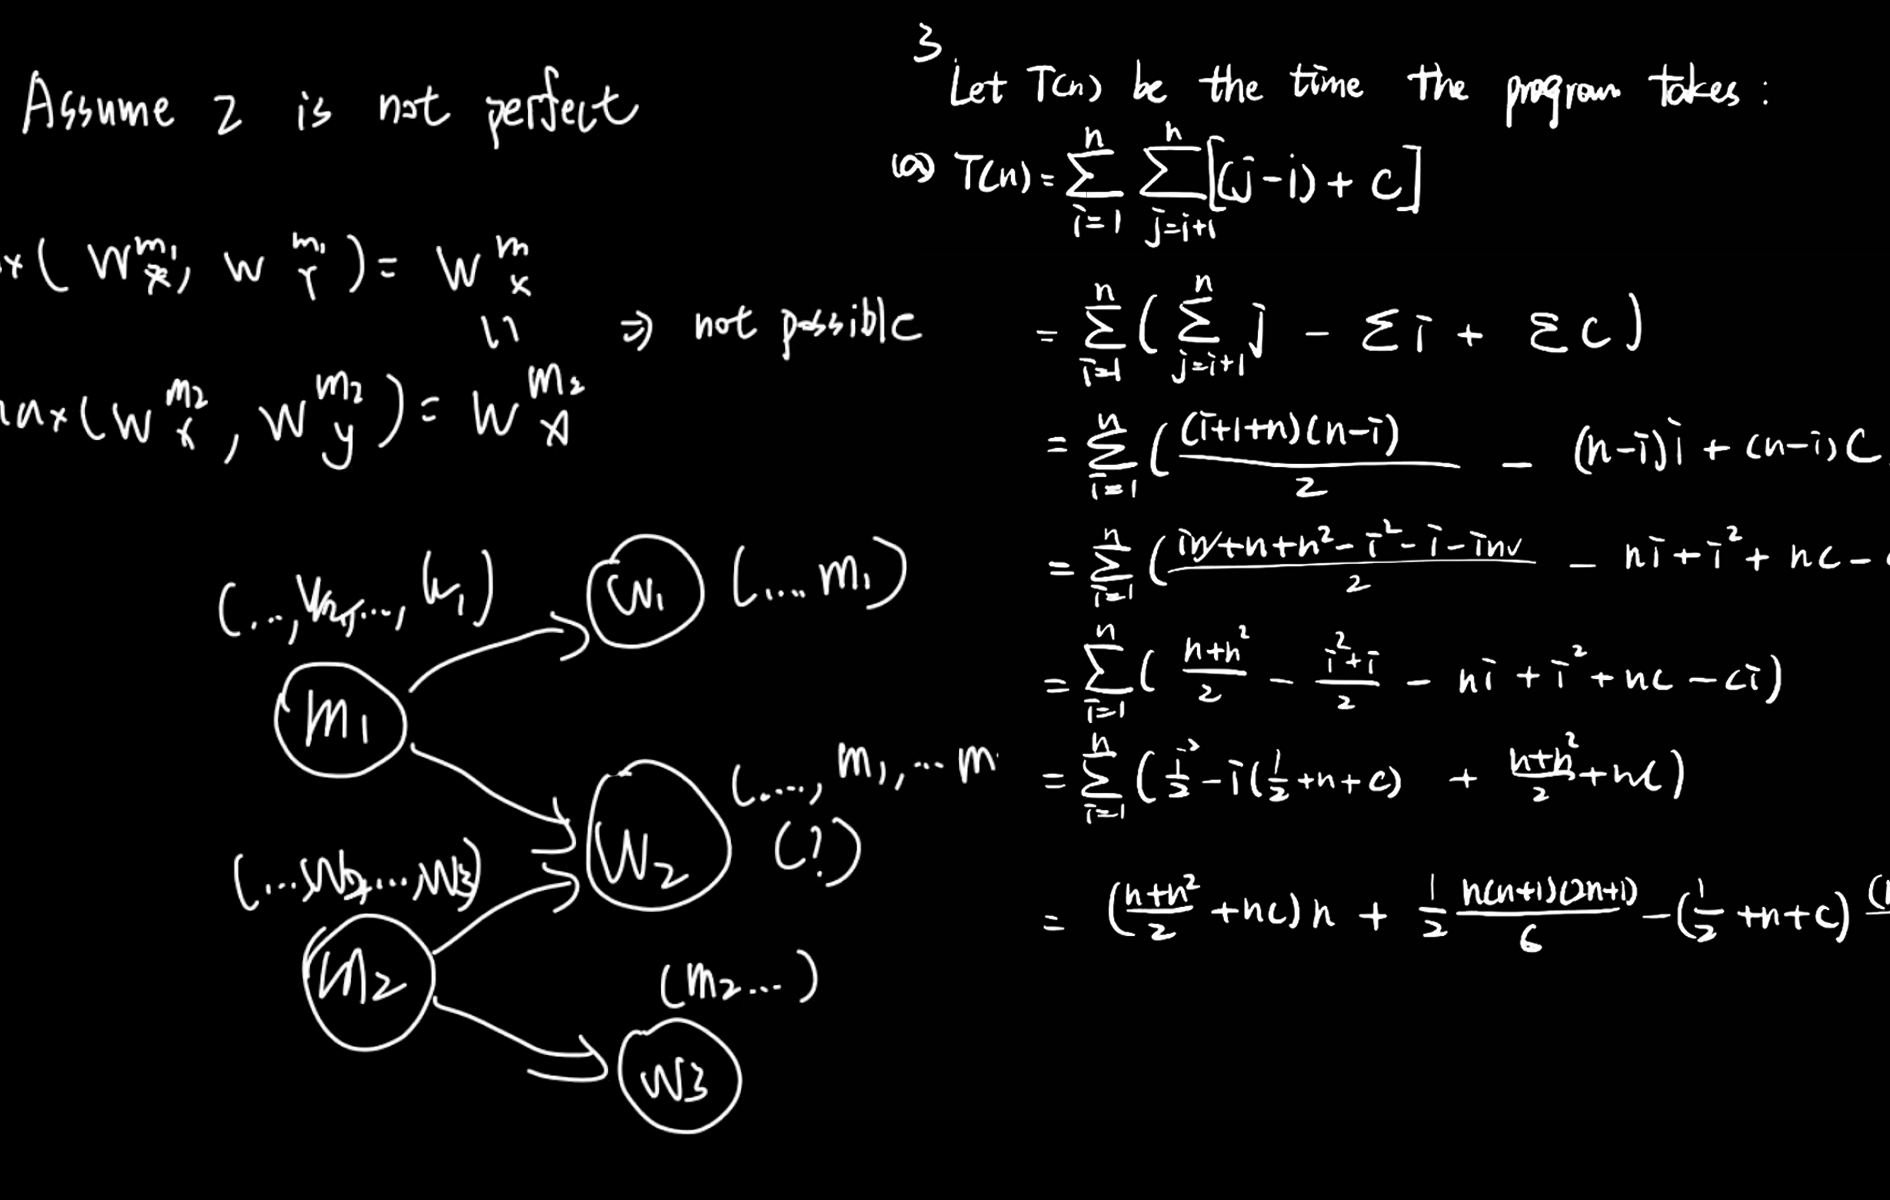 Assume 2 is not perfect
x( W^{m1}_{x}, W^{m1}_{Y} ) = W^{m}_{x}
⇒ not possible
max( W^{m2}_{x}, W^{m2}_{y} ) = W^{m2}_{x}
(..., , ..., W1)
W1 (.... m1)
m1
(...., m1, ... m
W2 (?)
(... W2, ..., W3)
m2
(m2 ... )
W3
3
Let T(n) be the time the program takes :
(a) T(n) = \sum_{i=1}^{n} \sum_{j=i+1}^{n} [(j-i) + C]
= \sum_{i=1}^{n} ( \sum_{j=i+1}^{n} j - Σi + ΣC )
= \sum_{i=1}^{n} ( \frac{(i+1+n)(n-i)}{2} - (n-i)i + (n-i)C
= \sum_{i=1}^{n} ( \frac{in+n+n^2-i^2-i-in}{2} - ni + i^2 + nc -
= \sum_{i=1}^{n} ( \frac{n+n^2}{2} - \frac{i^2+i}{2} - ni + i^2 + nc - ci )
= \sum_{i=1}^{n} ( \frac{i^2}{2} - i(\frac{1}{2}+n+c) + \frac{n+n^2}{2} + nc )
= (\frac{n+n^2}{2} + nc) n + \frac{1}{2} \frac{n(n+1)(2n+1)}{6} - (\frac{1}{2} + n + c)